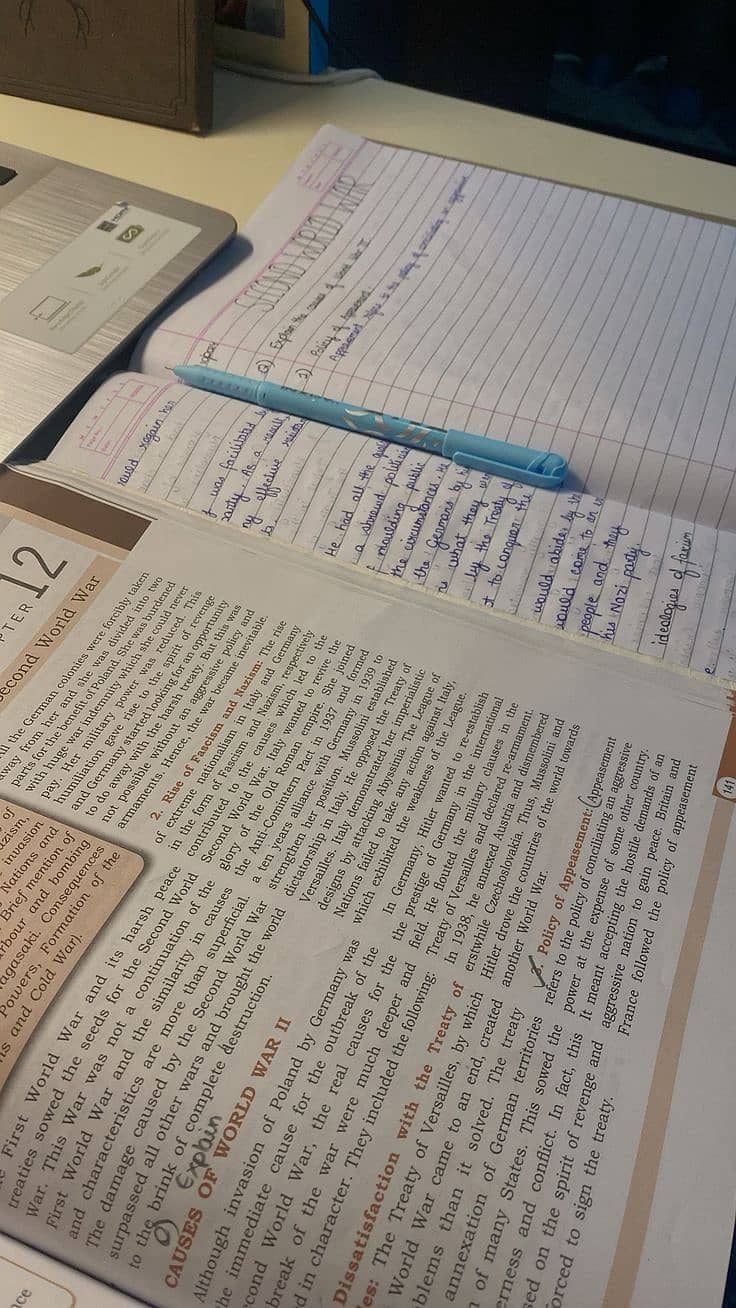 PTER
12
Second World War
of
Nazism,
invasion
Nations and
Brief mention of
rbour and bombing
agasaki. Consequences
Powers, Formation of the
ns and Cold War).
First World War and its harsh peace
treaties sowed the seeds for the Second World
War. This War was not a continuation of the
First World War and the similarity in causes
and characteristics are more than superficial.
The damage caused by the Second World War
surpassed all other wars and brought the world
to the brink of complete destruction.
Q) Explain
CAUSES OF WORLD WAR II
Although invasion of Poland by Germany was
the immediate cause for the outbreak of the
cond World War, the real causes for the
break of the war were much deeper and
d in character. They included the following:
Dissatisfaction with the Treaty of
es: The Treaty of Versailles, by which
World War came to an end, created
blems than it solved. The treaty
annexation of German territories
of many States. This sowed the
erness and conflict. In fact, this
sed on the spirit of revenge and
orced to sign the treaty.
all the German colonies were forcibly taken
away from her and she was divided into two
parts for the benefit of Poland. She was burdened
with huge war indemnity which she could never
pay. Her military power was reduced. This
humiliation gave rise to the spirit of revenge
and Germany started looking for an opportunity
to do away with the harsh treaty. But this was
not possible without an aggressive policy and
armaments. Hence, the war became inevitable.
2. Rise of Fascism and Nazism: The rise
of extreme nationalism in Italy and Germany
in the form of Fascism and Nazism, respectively
contributed to the causes which led to the
Second World War. Italy wanted to revive the
glory of the Old Roman empire. She joined
the Anti-Comintern Pact in 1937 and formed
a ten years alliance with Germany in 1939 to
strengthen her position. Mussolini established
dictatorship in Italy. He opposed the Treaty of
Versailles. Italy demonstrated her imperialistic
designs by attacking Abyssinia. The League of
Nations failed to take any action against Italy,
which exhibited the weakness of the League.
In Germany, Hitler wanted to re-establish
the prestige of Germany in the international
field. He flouted the military clauses in the
Treaty of Versailles and declared re-armament.
In 1938, he annexed Austria and dismembered
erstwhile Czechoslovakia. Thus, Mussolini and
Hitler drove the countries of the world towards
another World War.
Policy of Appeasement: (Appeasement
refers to the policy of conciliating an aggressive
power at the expense of some other country.
It meant accepting the hostile demands of an
aggressive nation to gain peace. Britain and
France followed the policy of appeasement
141
would regain her
t was facilitated b
party. As a result,
ny effective
He had all the
a shrewd politici
f moulding public
the circumstances
the Germans by
is what they
by the Treaty of
t to conquer the
would abide by
would come to an
people and they
his Nazi party.
ideologies of
SECOND WORLD WAR
Q) Explain the causes of World War II.
1) Policy of Appeasement
Appeasement refers to the policy of conciliating an aggressive